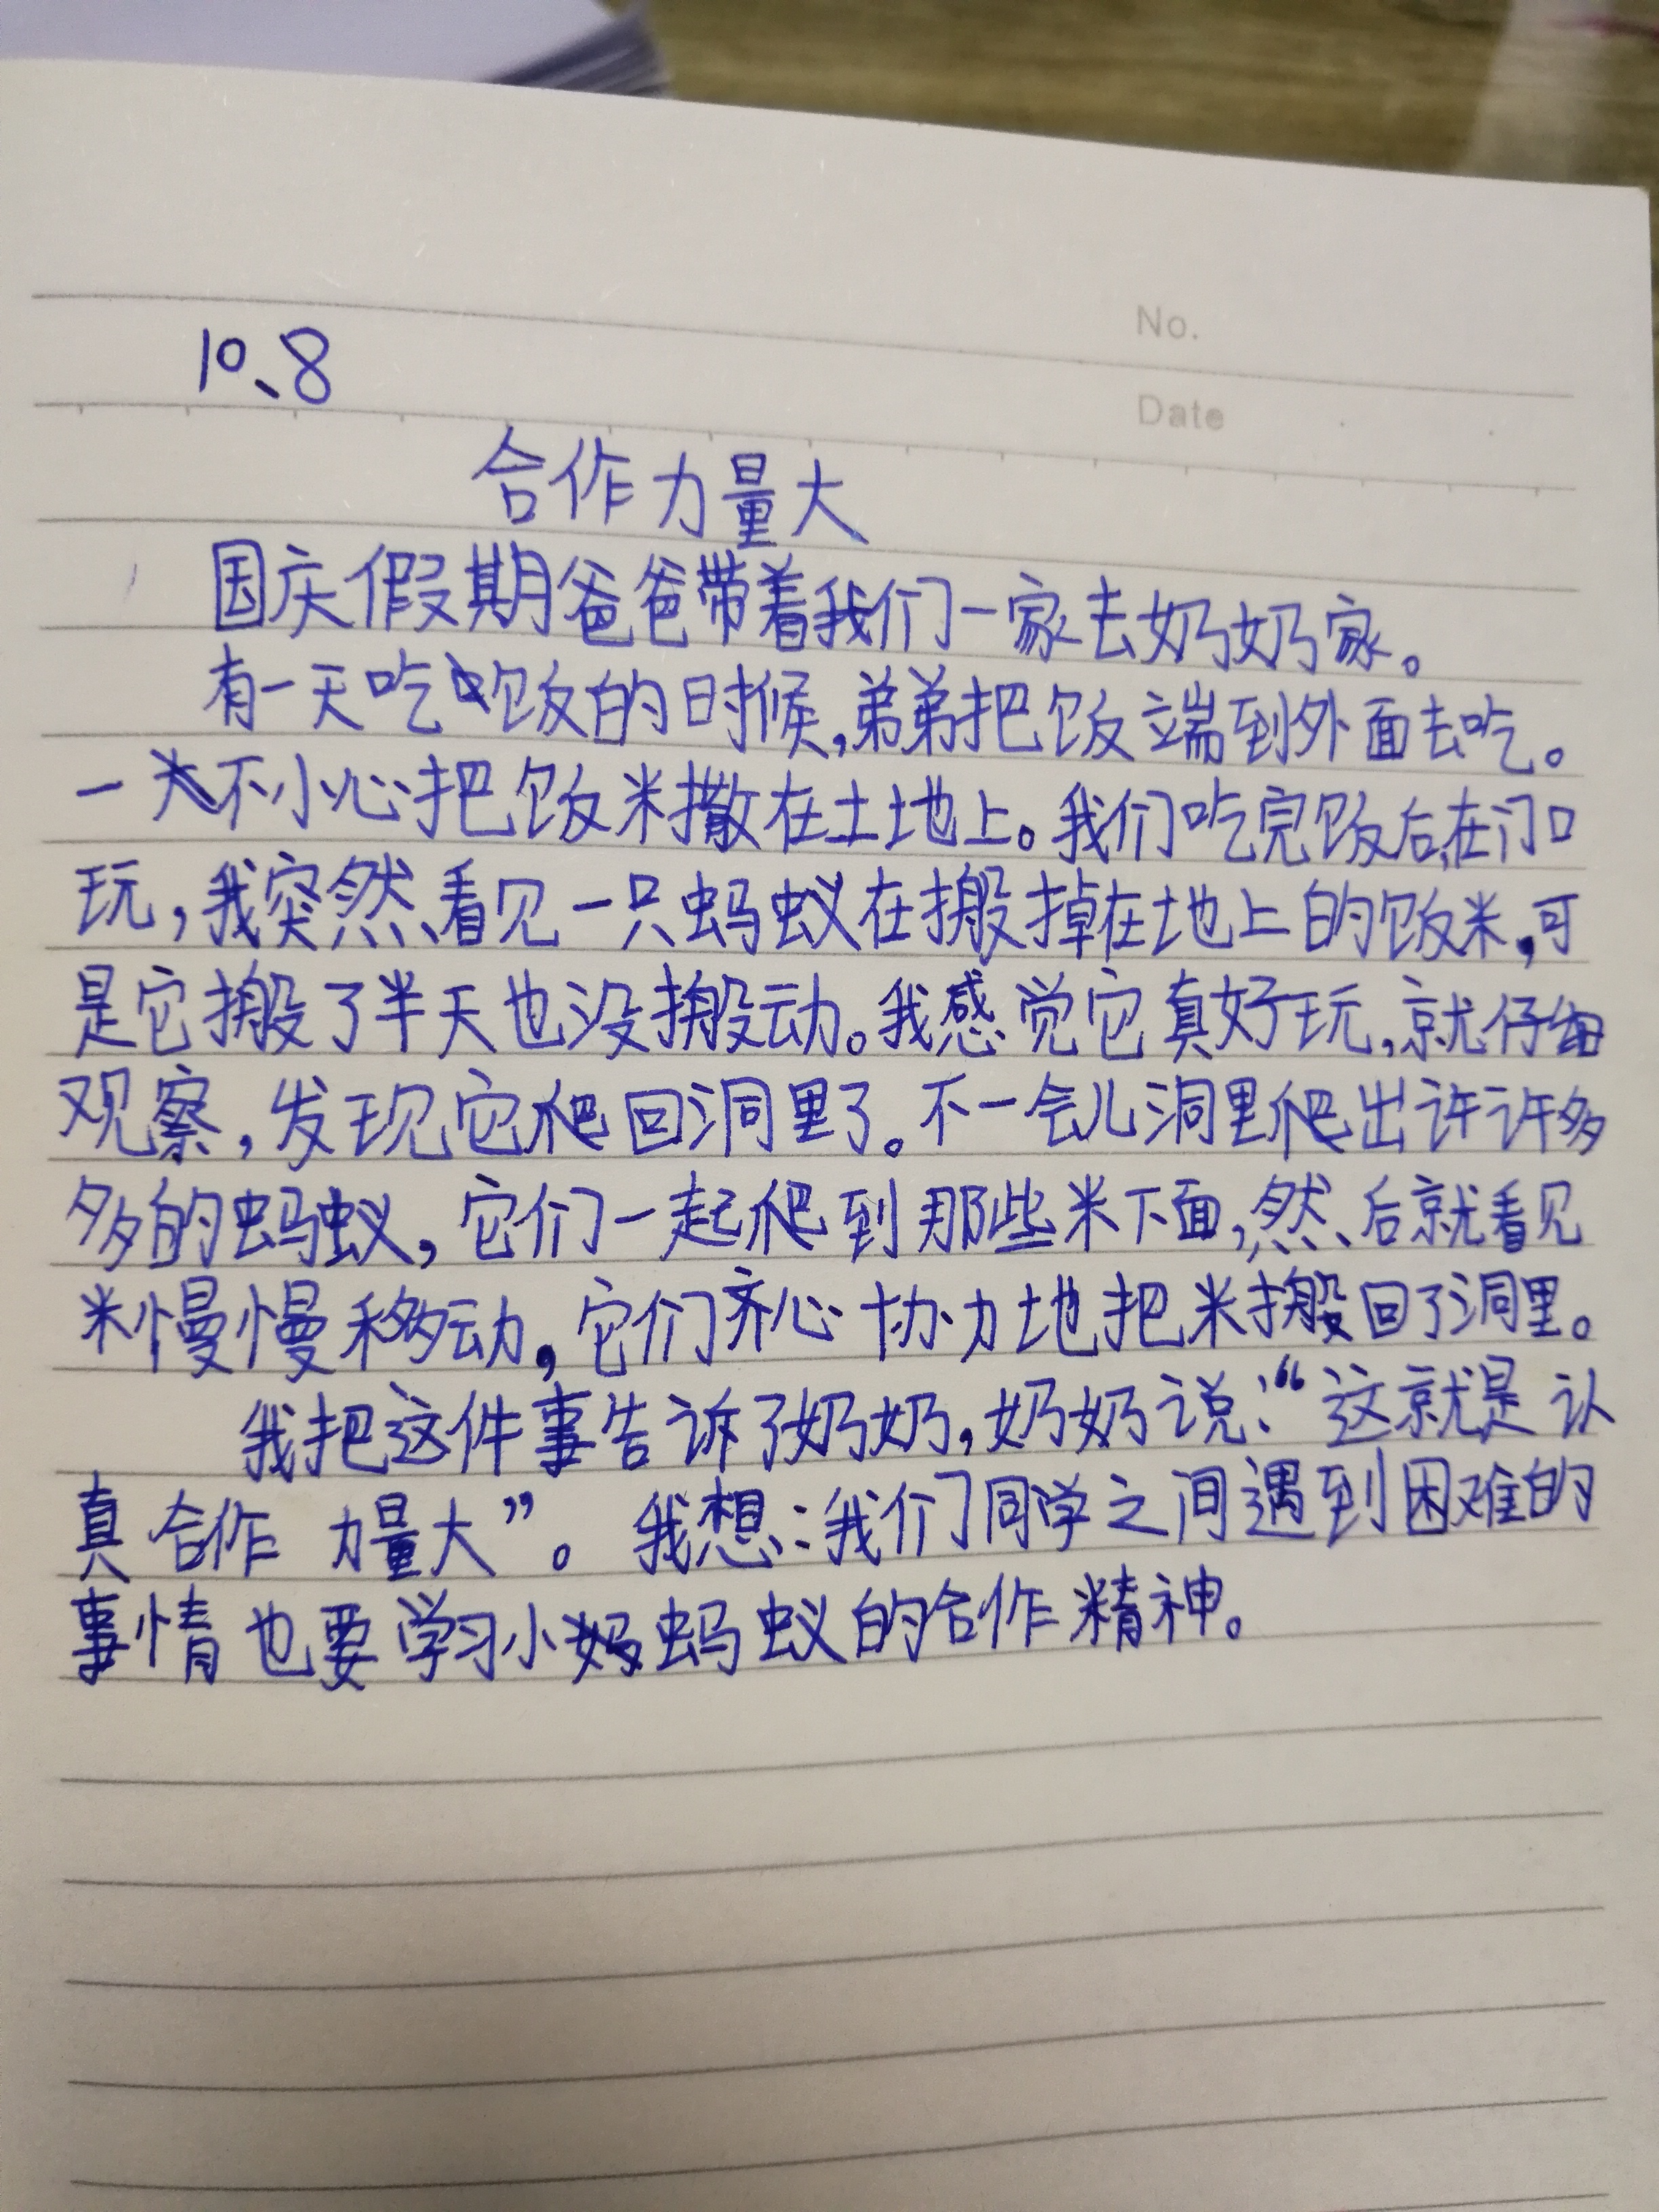 No.
10、8
Date
合作力量大
国庆假期爸爸带着我们一家去奶奶家。
有一天吃饭的时候,弟弟把饭端到外面去吃。
一不小心把饭米撒在土地上。我们吃完饭后,在门口
玩,我突然看见一只蚂蚁在搬掉在地上的饭米,可
是它搬了半天也没搬动。我感觉它真好玩,就仔细
观察,发现它爬回洞里了。不一会儿洞里爬出许许多
多的蚂蚁,它们一起爬到那些米下面,然后就看见
米慢慢移动,它们齐心协力地把米搬回了洞里。
我把这件事告诉了奶奶,奶奶说:“这就是认
真合作 力量大”。我想:我们同学之间遇到困难的
事情也要学习小蚂蚁的合作精神。